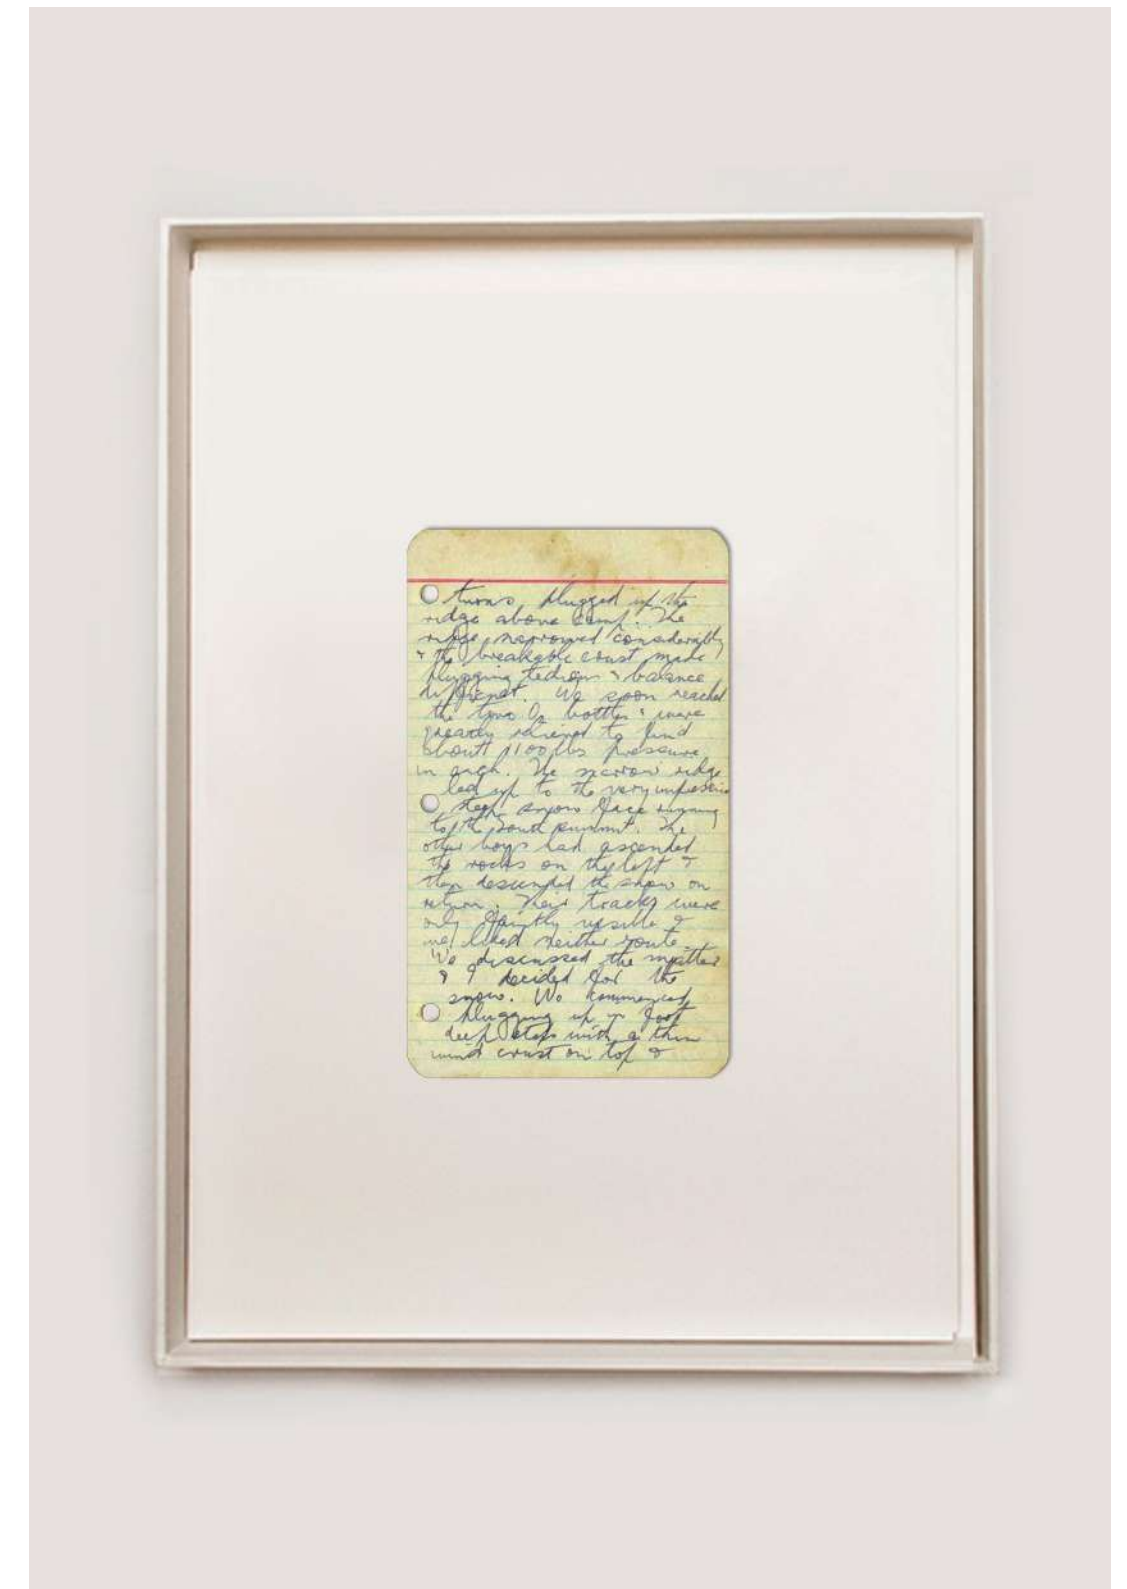 turns, plugged up the
ridge above camp. The
ridge narrowed considerably
& the breakable crust made
plugging tedious & balance
difficult. We soon reached
the two O2 bottles & were
greatly relieved to find
about 1100 lbs pressure
in each. The narrow ridge
led up to the very impressive
steep snow face running
to the South summit. The
other boys had ascended
the rocks on the left &
then descended the snow on
return. Their tracks were
only faintly visible &
we liked neither route.
We discussed the matter
& I decided for the
snow. We commenced
plugging up in foot
deep steps with a thin
wind crust on top &